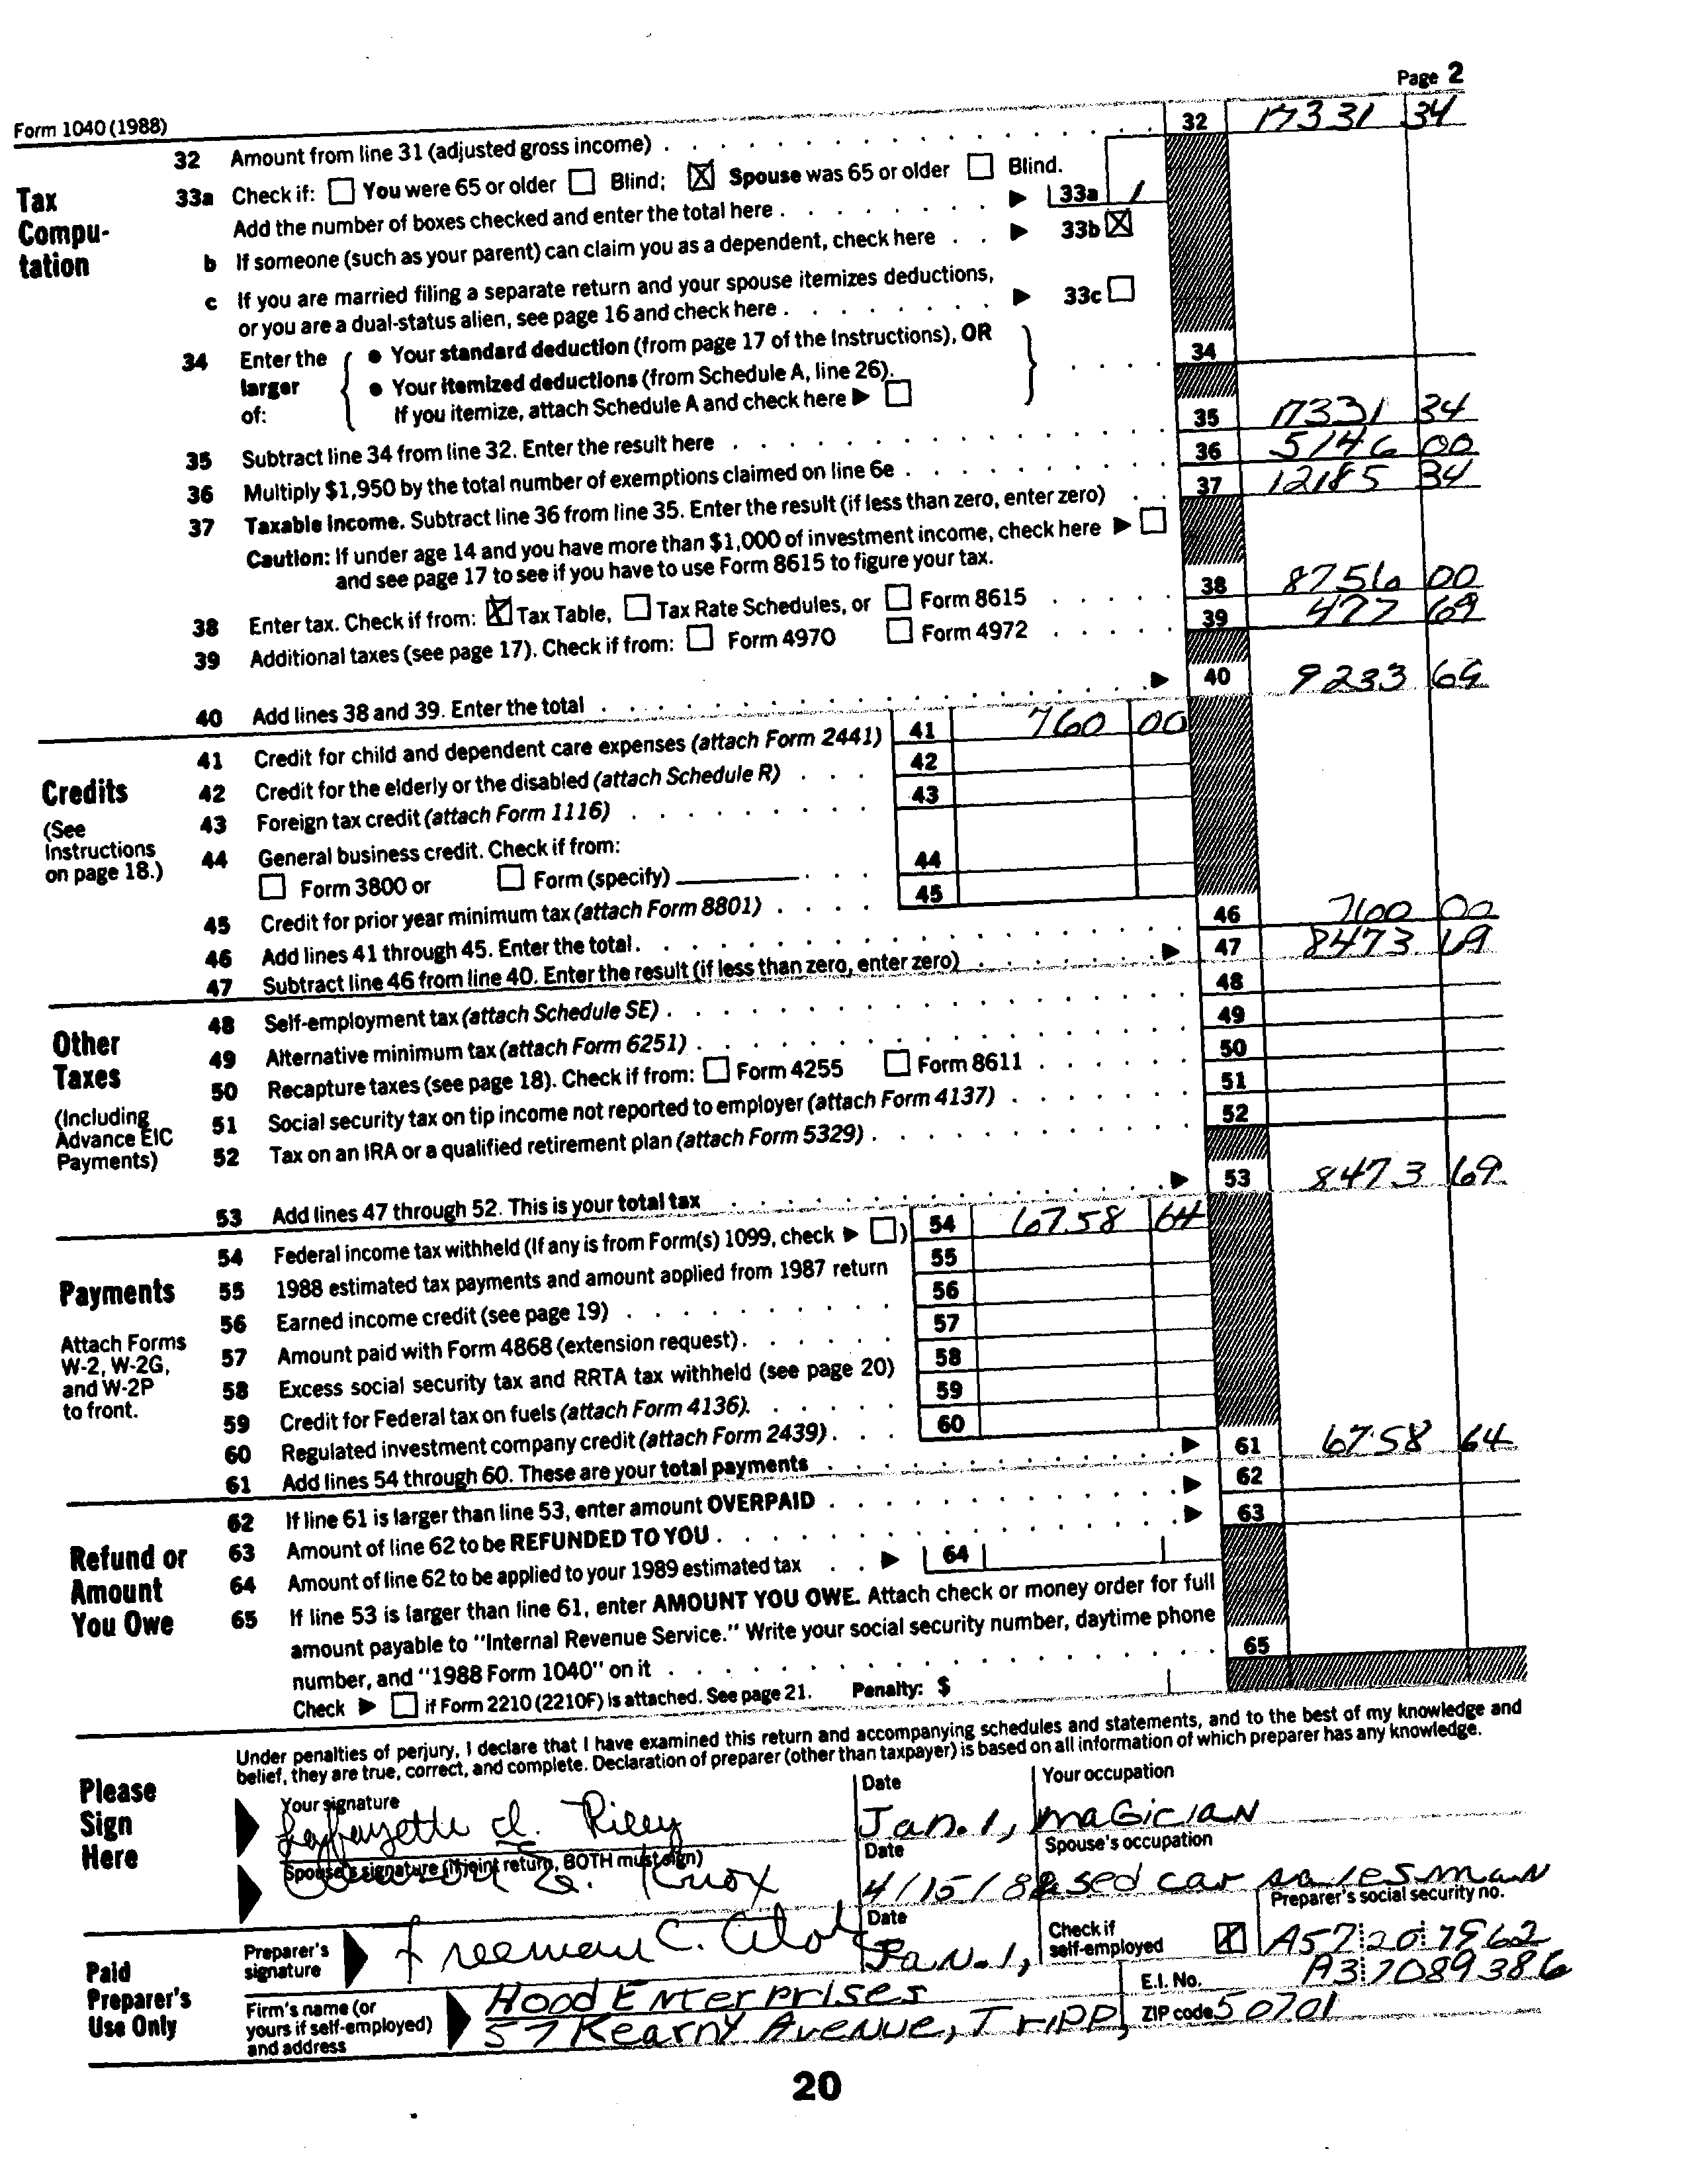 Page 2
Form 1040 (1988)
32 Amount from line 31 (adjusted gross income) 32 17331 34
Tax Compu-tation
33a Check if: You were 65 or older Blind; X Spouse was 65 or older Blind.
Add the number of boxes checked and enter the total here 33a 1
b If someone (such as your parent) can claim you as a dependent, check here 33b X
c If you are married filing a separate return and your spouse itemizes deductions,
or you are a dual-status alien, see page 16 and check here 33c
34 Enter the larger of: • Your standard deduction (from page 17 of the Instructions), OR 34
• Your itemized deductions (from Schedule A, line 26).
If you itemize, attach Schedule A and check here
35 Subtract line 34 from line 32. Enter the result here 35 17331 34
36 Multiply $1,950 by the total number of exemptions claimed on line 6e 36 5146 00
37 Taxable income. Subtract line 36 from line 35. Enter the result (if less than zero, enter zero) 37 12185 34
Caution: If under age 14 and you have more than $1,000 of investment income, check here
and see page 17 to see if you have to use Form 8615 to figure your tax.
38 Enter tax. Check if from: X Tax Table, Tax Rate Schedules, or Form 8615 38 8756 00
39 Additional taxes (see page 17). Check if from: Form 4970 Form 4972 39 477 69
40 Add lines 38 and 39. Enter the total 40 9233 69
Credits
(See Instructions on page 18.)
41 Credit for child and dependent care expenses (attach Form 2441) 41 760 00
42 Credit for the elderly or the disabled (attach Schedule R) 42
43 Foreign tax credit (attach Form 1116) 43
44 General business credit. Check if from:
Form 3800 or Form (specify) 44
45 Credit for prior year minimum tax (attach Form 8801) 45
46 Add lines 41 through 45. Enter the total. 46 7600 00
47 Subtract line 46 from line 40. Enter the result (if less than zero, enter zero) 47 8473 69
Other Taxes
(Including Advance EIC Payments)
48 Self-employment tax (attach Schedule SE) 48
49 Alternative minimum tax (attach Form 6251) 49
50 Recapture taxes (see page 18). Check if from: Form 4255 Form 8611 50
51 Social security tax on tip income not reported to employer (attach Form 4137) 51
52 Tax on an IRA or a qualified retirement plan (attach Form 5329) 52
53 Add lines 47 through 52. This is your total tax 53 8473 69
Payments
Attach Forms W-2, W-2G, and W-2P to front.
54 Federal income tax withheld (If any is from Form(s) 1099, check ) 54 6758 64
55 1988 estimated tax payments and amount applied from 1987 return 55
56 Earned income credit (see page 19) 56
57 Amount paid with Form 4868 (extension request) 57
58 Excess social security tax and RRTA tax withheld (see page 20) 58
59 Credit for Federal tax on fuels (attach Form 4136). 59
60 Regulated investment company credit (attach Form 2439) 60
61 Add lines 54 through 60. These are your total payments 61 6758 64
Refund or Amount You Owe
62 If line 61 is larger than line 53, enter amount OVERPAID 62
63 Amount of line 62 to be REFUNDED TO YOU 63
64 Amount of line 62 to be applied to your 1989 estimated tax 64
65 If line 53 is larger than line 61, enter AMOUNT YOU OWE. Attach check or money order for full
amount payable to "Internal Revenue Service." Write your social security number, daytime phone
number, and "1988 Form 1040" on it 65
Check if Form 2210 (2210F) is attached. See page 21. Penalty: $
Under penalties of perjury, I declare that I have examined this return and accompanying schedules and statements, and to the best of my knowledge and
belief, they are true, correct, and complete. Declaration of preparer (other than taxpayer) is based on all information of which preparer has any knowledge.
Please Sign Here
Your signature Date Your occupation
Lafayette d. Riley Jan. 1, maGiciaN
Spouse's signature (if joint return, BOTH must sign) Date Spouse's occupation
Knox 4/15/88 used car salesman
Paid Preparer's Use Only
Preparer's signature Date Check if self-employed Preparer's social security no.
freeman C. JaN. 1, X A57 20 7562
Firm's name (or yours if self-employed) and address E.I. No. ZIP code
Hood Enterprises A37089386
57 Kearny Avenue, Tripp, 50701
20